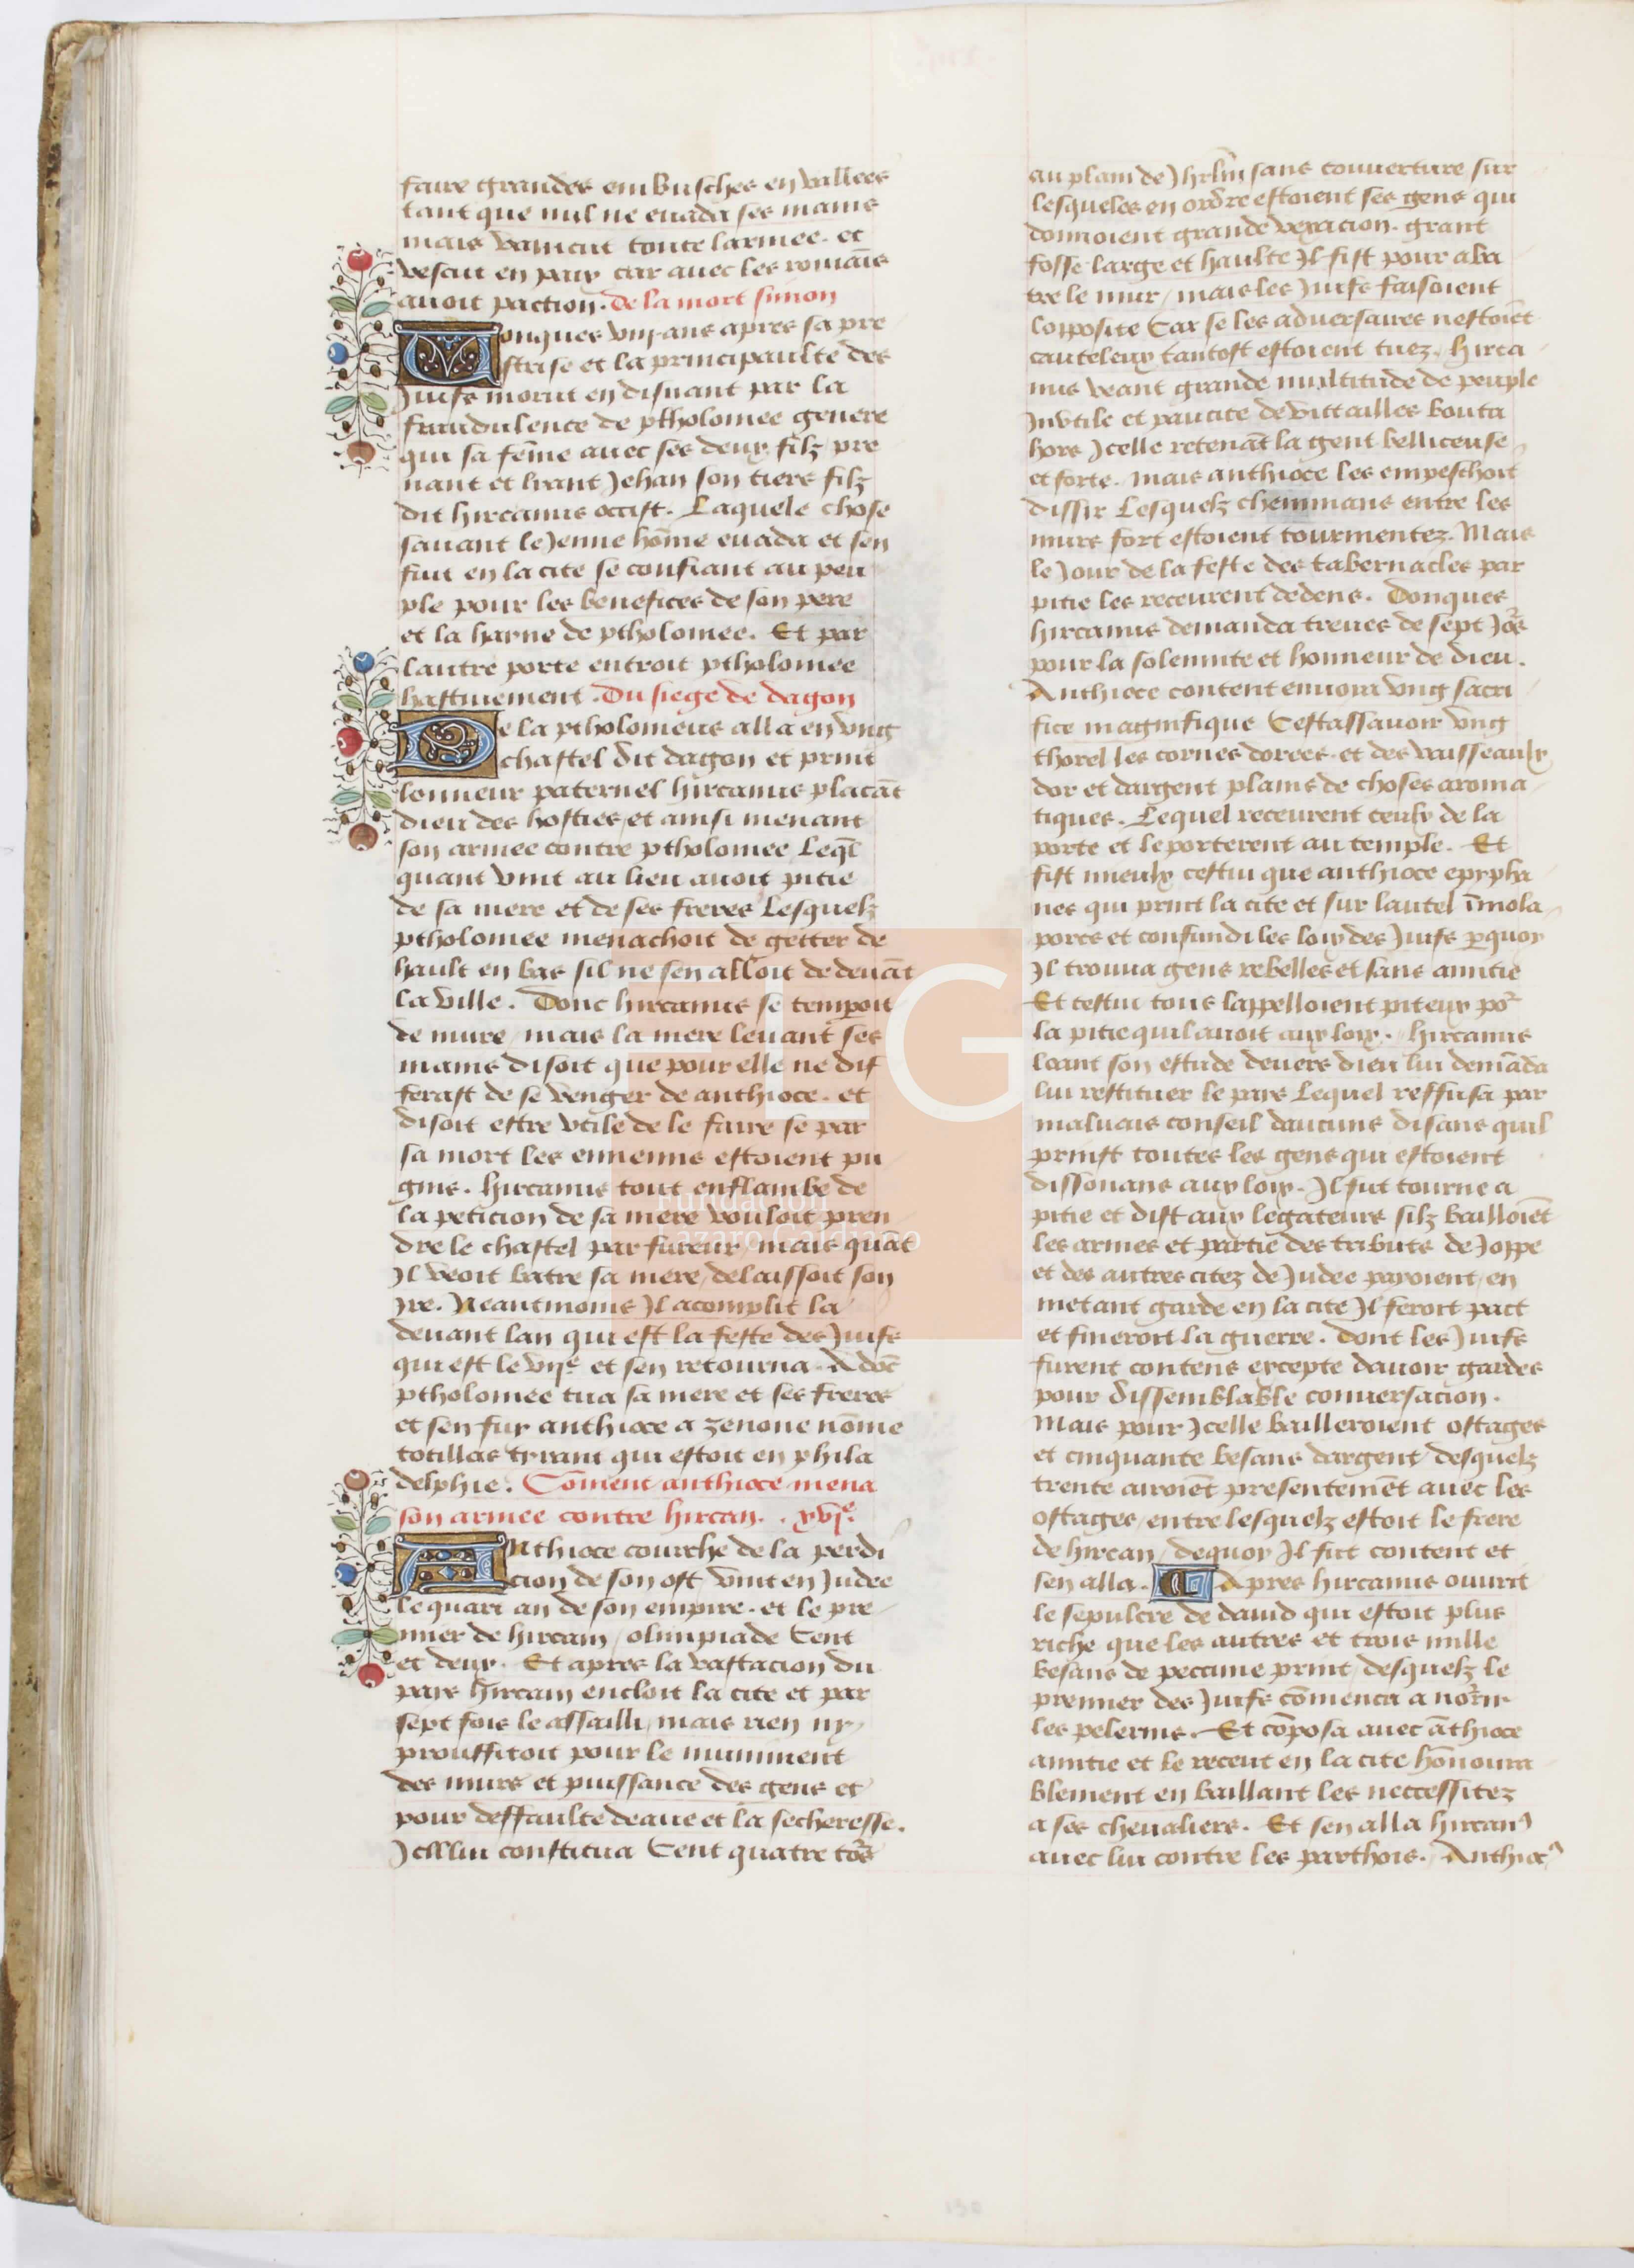 faire grandes embusches en vallees
tant que nul ne euada ses mains
mais vaincut toute larmee. et
vescut en paix car auec les romaīs
auoit paction. de la mort simon
Donques viij. ans apres sa pre
strise et la principaulte des
Juifs morut en disnant par la
fraudulence de ptholomee genere
qui sa fēme auec ses deux filz pre
nant et liant Jehan son tiers filz
dit hircanus occist. Laquele chose
sauant le Jenne hōme euada et sen
fuit en la cite se confiant au peu
ple pour les benefices de son pere
et la hayne de ptholomee. Et par
lautre porte entroit ptholomee
hastiuement. Du siege de dagon
De la ptholomeus alla en vng
chastel dit dagon et print
lonneur paternel hircanus placāt
dieu des hosties, et ainsi menant
son armee contre ptholomee Leql̄
quant vint au lieu auoit pitie
de sa mere et de ses freres Lesquelz
ptholomee menachoit de getter de
hault en bas sil ne sen alloit de deuāt
la ville. Donc hircanus se tempoit
de murs, mais la mere leuant ses
mains disoit que pour elle ne dif
ferast de se venger de anthioce. et
disoit estre vtile de le faire se par
sa mort les ennemis estoient pu
gnis. hircanus tout enflambe de
la peticion de sa mere vouloit pren
dre le chastel par fureur, mais quāt
Il veoit batre sa mere, delaissoit son
yre. Neantmoins Il acomplit la
deuant lan qui est la feste des Juifs
qui est le vije et sen retourna. A dōc
ptholomee tua sa mere et ses freres
et sen fuy anthioce a zenone nōme
totillas tyrant qui estoit en phila
delphie. Cōment anthioce mena
son armee contre hircan. . xvje.
Anthioce courche de la perdi
cion de son ost vint en Judee
le quart an de son empire. et le pre
mier de hircam, olimpiade Cent
et deux. Et apres la vastacion du
pays hircam encloit la cite et par
sept fois le assailli, mais rien ny
prouffitoit pour le muniment
des murs et puissance des gens et
pour deffaulte deaue et la secheresse.
Icellui constitua Cent quatre tōrs
au plain de Jhrlm̄ sans couuerture sur
lesqueles en ordre estoient ses gens qui
donnoient grande vexacion. grant
fosse large et haulte Il fist pour aba
tre le mur, mais les Juifs faisoient
lopposite Car se les aduersaires nestoiēt
cauteleux tantost estoient tuez. hirca
nus veant grande multitude de peuple
Inutile et paucite de vittailles bouta
hors Icelle retenāt la gent belliceuse
et forte. Mais anthioce les empeschoit
dissir Lesquelz cheminans entre les
murs fort estoient tourmentez. Mais
le Jour de la feste des tabernacles par
pitie les receurent dedens. Donques
hircanus demanda treues de sept Jors
pour la solennite et honneur de dieu.
Anthioce content enuoia vng sacri
fice magnifique Cestassauoir vng
thorel les cornes dorees. et des vaisseaulx
dor et dargent plains de choses aroma
tiques. Lequel receurent ceulx de la
porte et le porterent au temple. Et
fist mieulx cestui que anthioce epypha
nes qui print la cite et sur lautel īmola
porcs et confundi les loix des Juifs p̲quoy
Il trouua gens rebelles et sans amitie
Et cestui tous lappelloient piteux por
la pitie quil auoit aux loix. hircanus
leant son estude deuers dieu lui demāda
lui restituer le pays Lequel reffusa par
maluais conseil daucuns disans quil
prinst toutes les gens qui estoient
dissonans aux loix. Il fut tourne a
pitie et dist aux legateurs silz bailloiēt
les armes et partie des tributs de Joppe
et des autres citez de Judee payoient, en
metant garde en la cite Il feroit pact
et fineroit la guerre. Dont les Juifs
furent contens excepte dauoir gardes
pour dissemblable conuersacion.
Mais pour Icelle bailleroient ostages
et cinquante besans dargent, desquelz
trente auroiēt presentemēt auec les
ostages, entre lesquelz estoit le frere
de hircan, dequoy Il fut content et
sen alla. Apres hircanus ouurit
le sepulcre de dauid qui estoit plus
riche que les autres et trois mille
besans de peccune print, desquelz le
premier des Juifs cōmenca a norrir
les pelerins. Et cōposa auec āthioce
amitie et le receut en la cite honnoura
blement en baillant les neccessitez
a ses cheualiers. Et sen alla hircan9
auec lui contre les parthois. Anthioc9
FLG
Fundación
Lázaro Galdiano